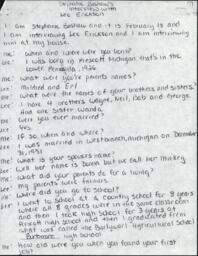 Stephanie Beshaw's
interview with
Lee Erickson
I am Stephanie Beshaw and it is February 13 and
I am interviewing Lee Erickson and I am interviewing
him at my house.
me: when and where were you born?
Lee: I was born in Prescott Michigan that's in the
Lower Peninsula, 1926
me: what were your parents names?
Lee: Mildred and Erl
me: what were the names of your brothers and sisters?
Lee: I have 4 brothers Wayne, Neil, Bob and George.
And one sister Wanda.
me: were you ever married?
Lee: Yes
me: If so when and where?
Lee: I was married in Michigan on December
1951
me: what is your spouses name?
Lee: Well her name is Doren but we call her Mickey
me: what did your parents do for a living?
Lee: my parents were farmers
me: where did you go to school?
Lee: I went to school at a country school for 8 years
where all 8 grades were in the same classroom
and then I took high school for 3 years at
high school and then I graduated from
what was called the Agricultural School
high school
me: How old were you when you found your first
job?